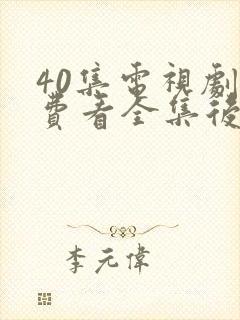 40集電視劇
費看全集後
李元偉